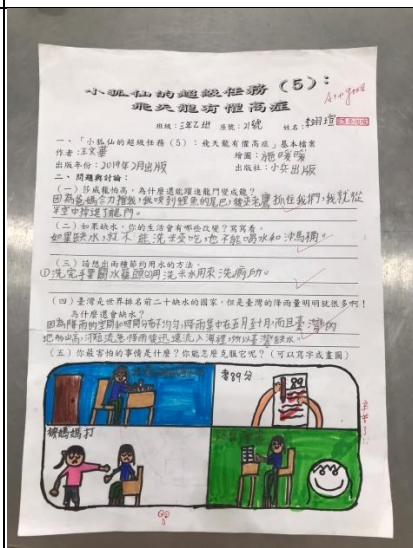 小狐仙的超級任務（5）：
飛天龍有懼高症
Very good
班級：三年乙班 座號：21號 姓名：
一、「小狐仙的超級任務（5）：飛天龍有懼高症」基本檔案
作者：王文華 繪圖：施暖暖
出版年份：2019年2月出版 出版社：小兵出版
二、問題與討論：
（一）莎威龍怕高，為什麼還能躍進龍門變成龍？
因為爸媽合力推我，我咬到鯉魚的尾巴，
空中掉進了龍門。
（二）如果缺水，你的生活會有哪些改變？寫寫看。
如果缺水，就不能洗米受吃，也不能喝水和沖馬桶。
（三）請想出兩種節約用水的方法。
①洗完手要關水龍頭②用洗米水用來洗廁所。
（四）臺灣是世界排名前二十缺水的國家，但是臺灣的降雨量明明就很多啊！
為什麼還會缺水？
因為降雨的空間和時間分布不均勻，降雨集中在五月至十月，而且臺灣的
地勢高，河陡流急，降雨後迅速流入海裡，所以臺灣缺水。
（五）你最害怕的事情是什麼？你能怎麼克服它呢？（可以寫字或畫圖）
考89分
89
被媽媽打